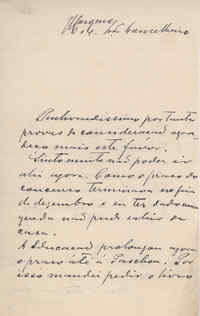 Marques
Penhoradissimo por tanta
prova de consideração agra-
deço mais este favor.
Sinto muito não poder ir
ahi agora. Como o prazo do
concurso terminava no fim
de dezembro e eu ter dado uma
queda não pude sahir de
casa.
A Educação prolongou agora
o prazo até á Paschoa. Por
isso mandei pedir o livro